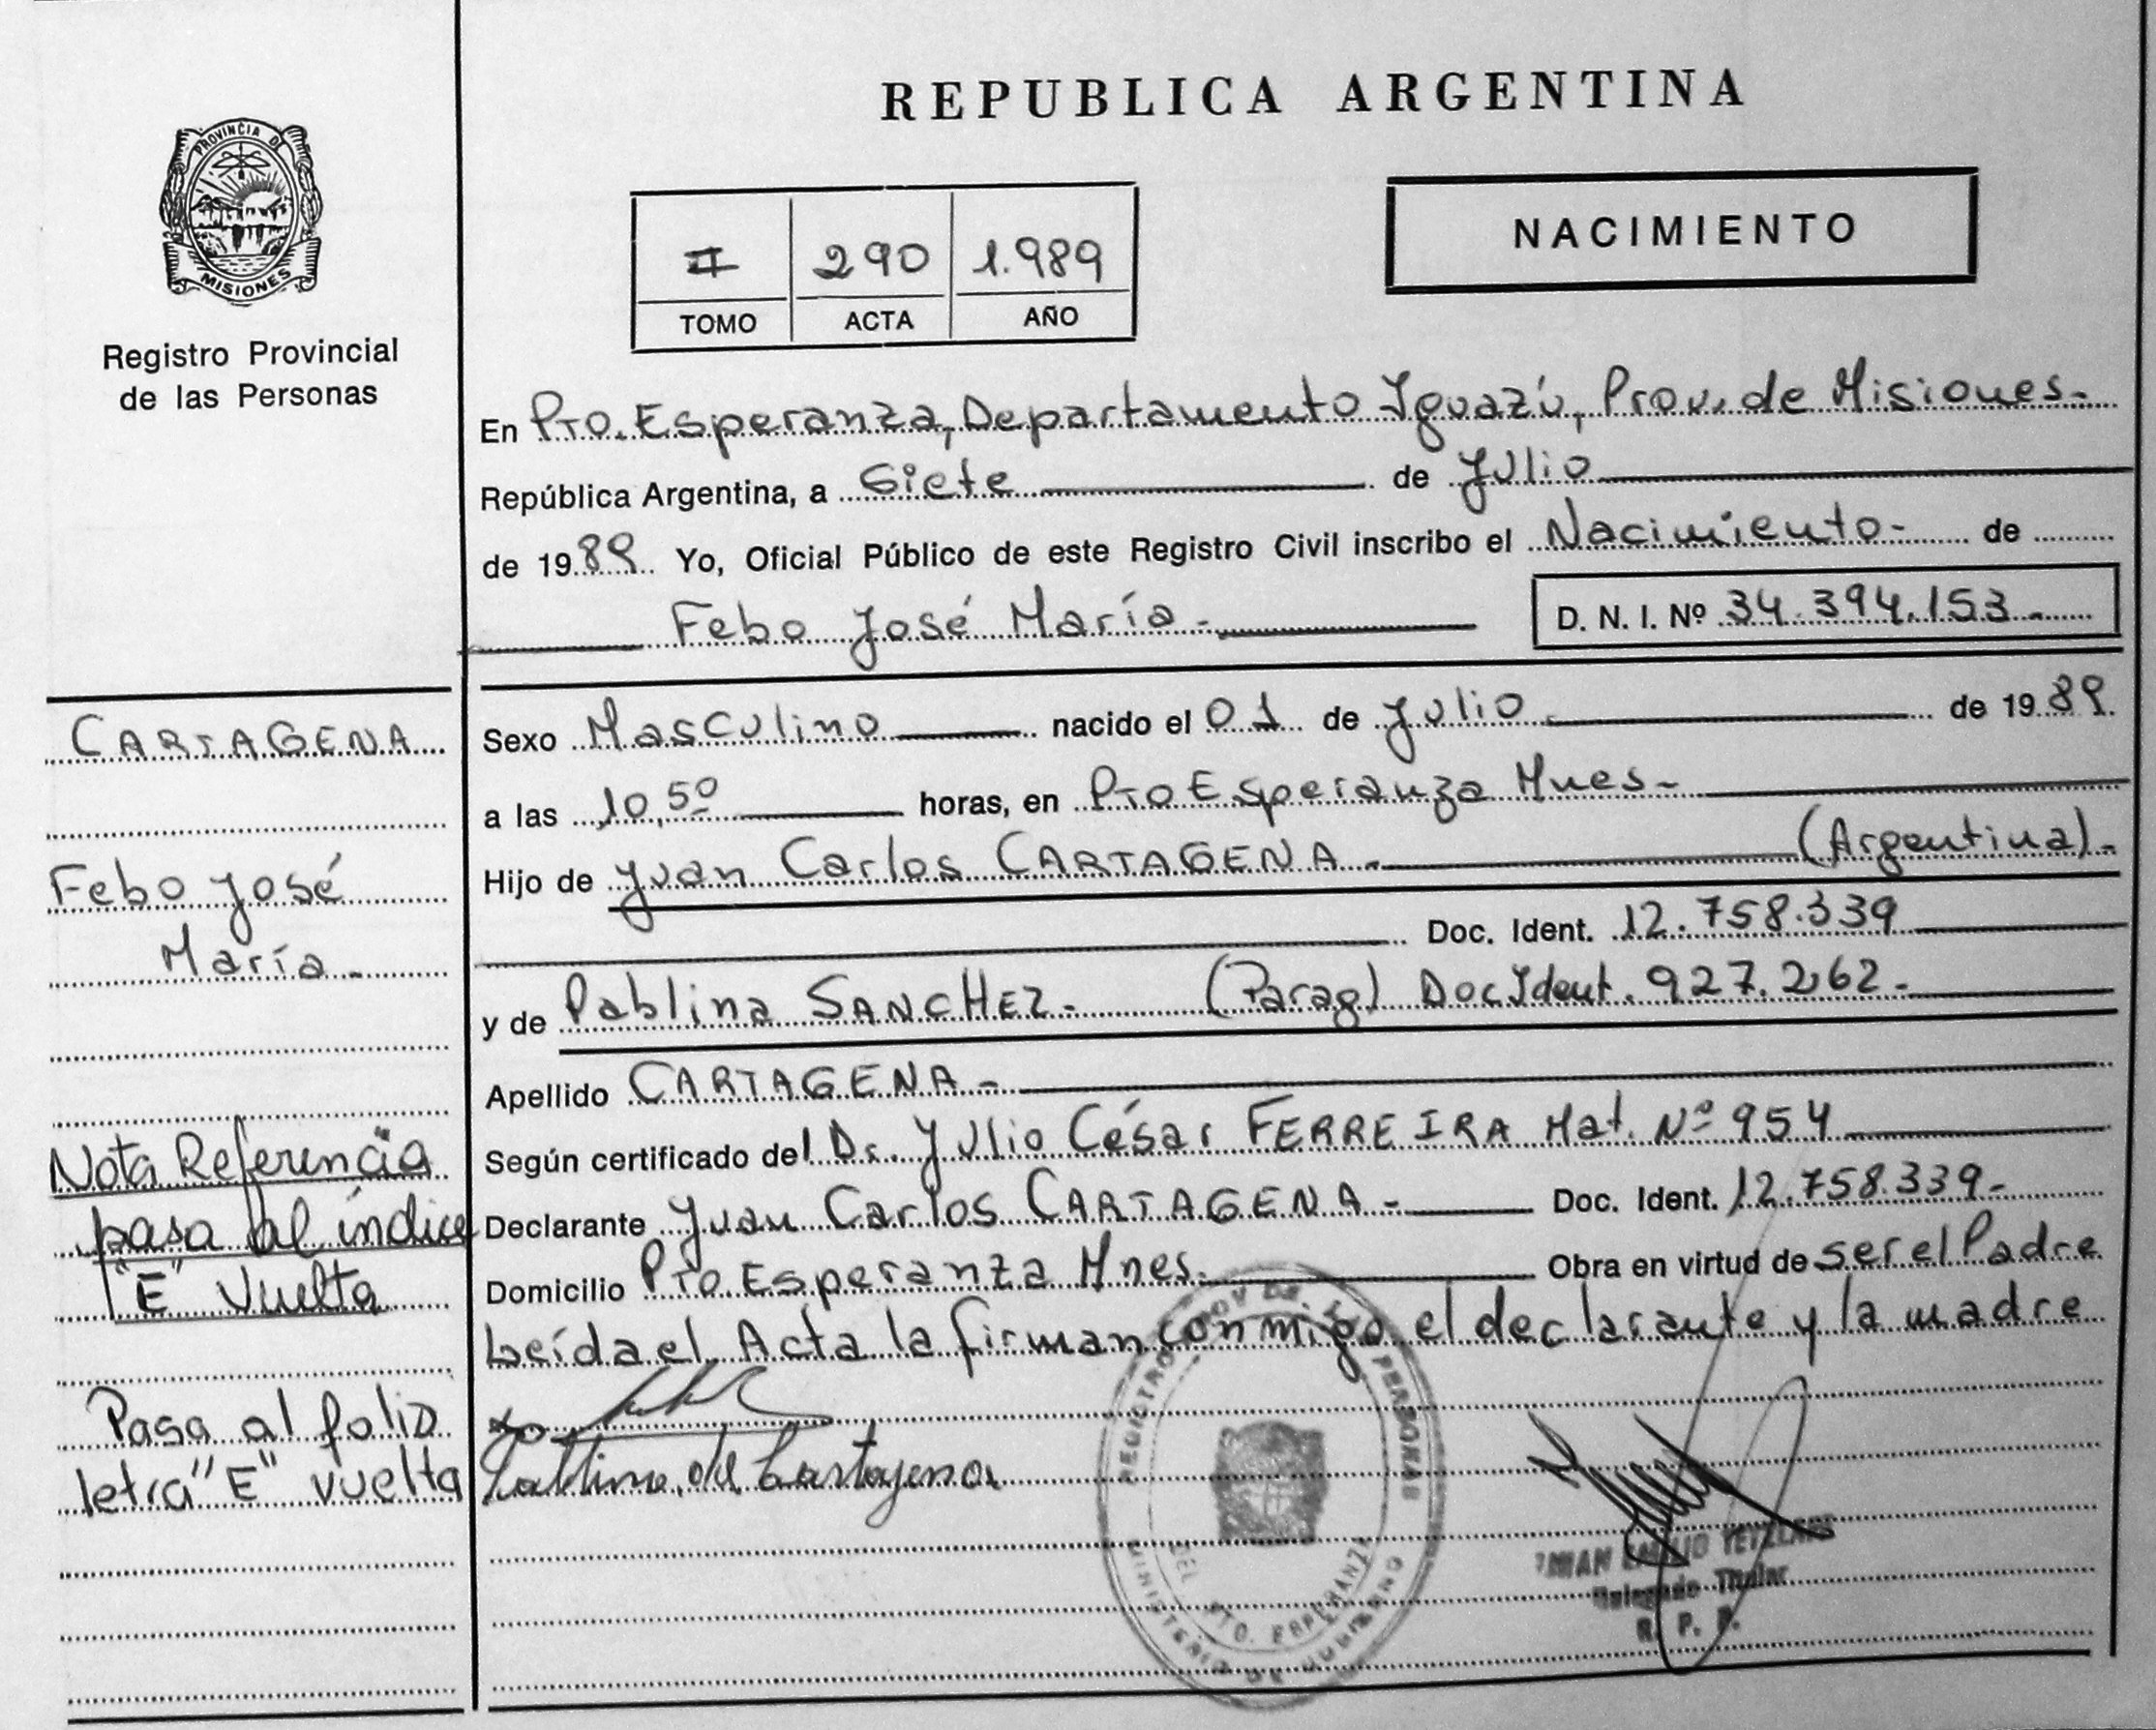 REPUBLICA ARGENTINA
PROVINCIA DE
MISIONES
Registro Provincial
de las Personas
290 1.989
TOMO ACTA AÑO
NACIMIENTO
En Pto. Esperanza, Departamento Iguazú, Prov. de Misiones-
República Argentina, a Siete de Julio
de 1989 Yo, Oficial Público de este Registro Civil inscribo el Nacimiento- de
Febo José María- D. N. I. Nº 34.394.153-
CARTAGENA
Febo José
María-
Nota Referencia
pasa al índice
"E" Vuelta
Pasa al folio
letra "E" vuelta
Sexo Masculino nacido el 01 de Julio de 1989
a las 10,50 horas, en Pto Esperanza Mnes-
Hijo de Juan Carlos CARTAGENA- (Argentina)-
Doc. Ident. 12.758.339
y de Pablina SANCHEZ- (Parag) Doc Ident. 927.262-
Apellido CARTAGENA-
Según certificado del Dr. Julio César FERREIRA Mat. Nº 954
Declarante Juan Carlos CARTAGENA- Doc. Ident. 12.758.339-
Domicilio Pto Esperanza Mnes. Obra en virtud de ser el Padre
Leída el Acta la firman conmigo el declarante y la madre
de Cartagena
REGISTRO PROV DE PERSONAS
MINISTERIO DE GOBIERNO
DEL PTO. ESPERANZA
Delegado Titular
R. P. P.